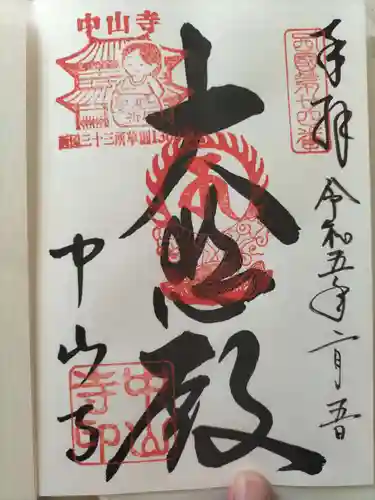 奉拝
令和五年二月吾日
大悲殿
中山寺
中山寺
西国三十三所草創1300年
中山寺印